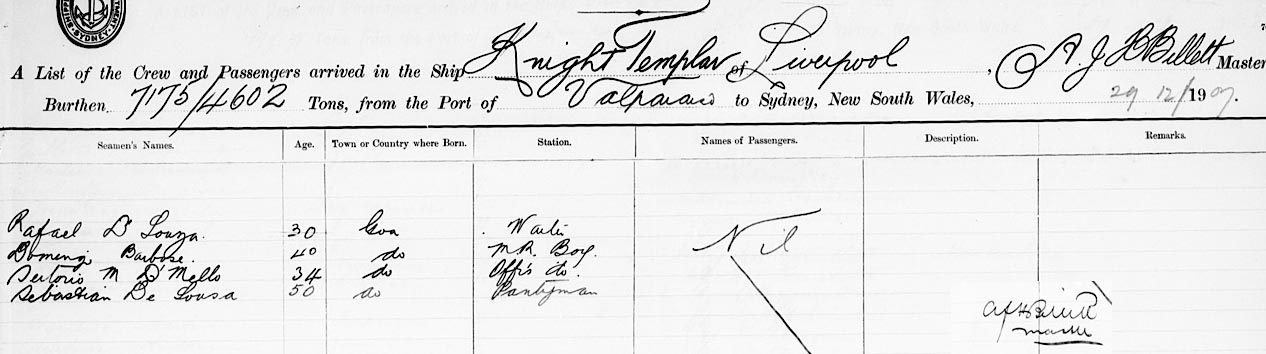 SYDNEY
A List of the Crew and Passengers arrived in the Ship Knight Templar of Liverpool, A. J. B Billett Master
Burthen 7175/4602 Tons, from the Port of Valparaiso to Sydney, New South Wales, 29 12/1907.
Seamen's Names. Age. Town or Country where Born. Station. Names of Passengers. Description. Remarks.
Rafael D'Souza. 30 Goa Waiter Nil
Domingo Barbose. 40 do M.R. Boy.
Sertorio M D'Mello 34 do Offrs do.
Sebastian De Sousa 50 do Pantryman
Master